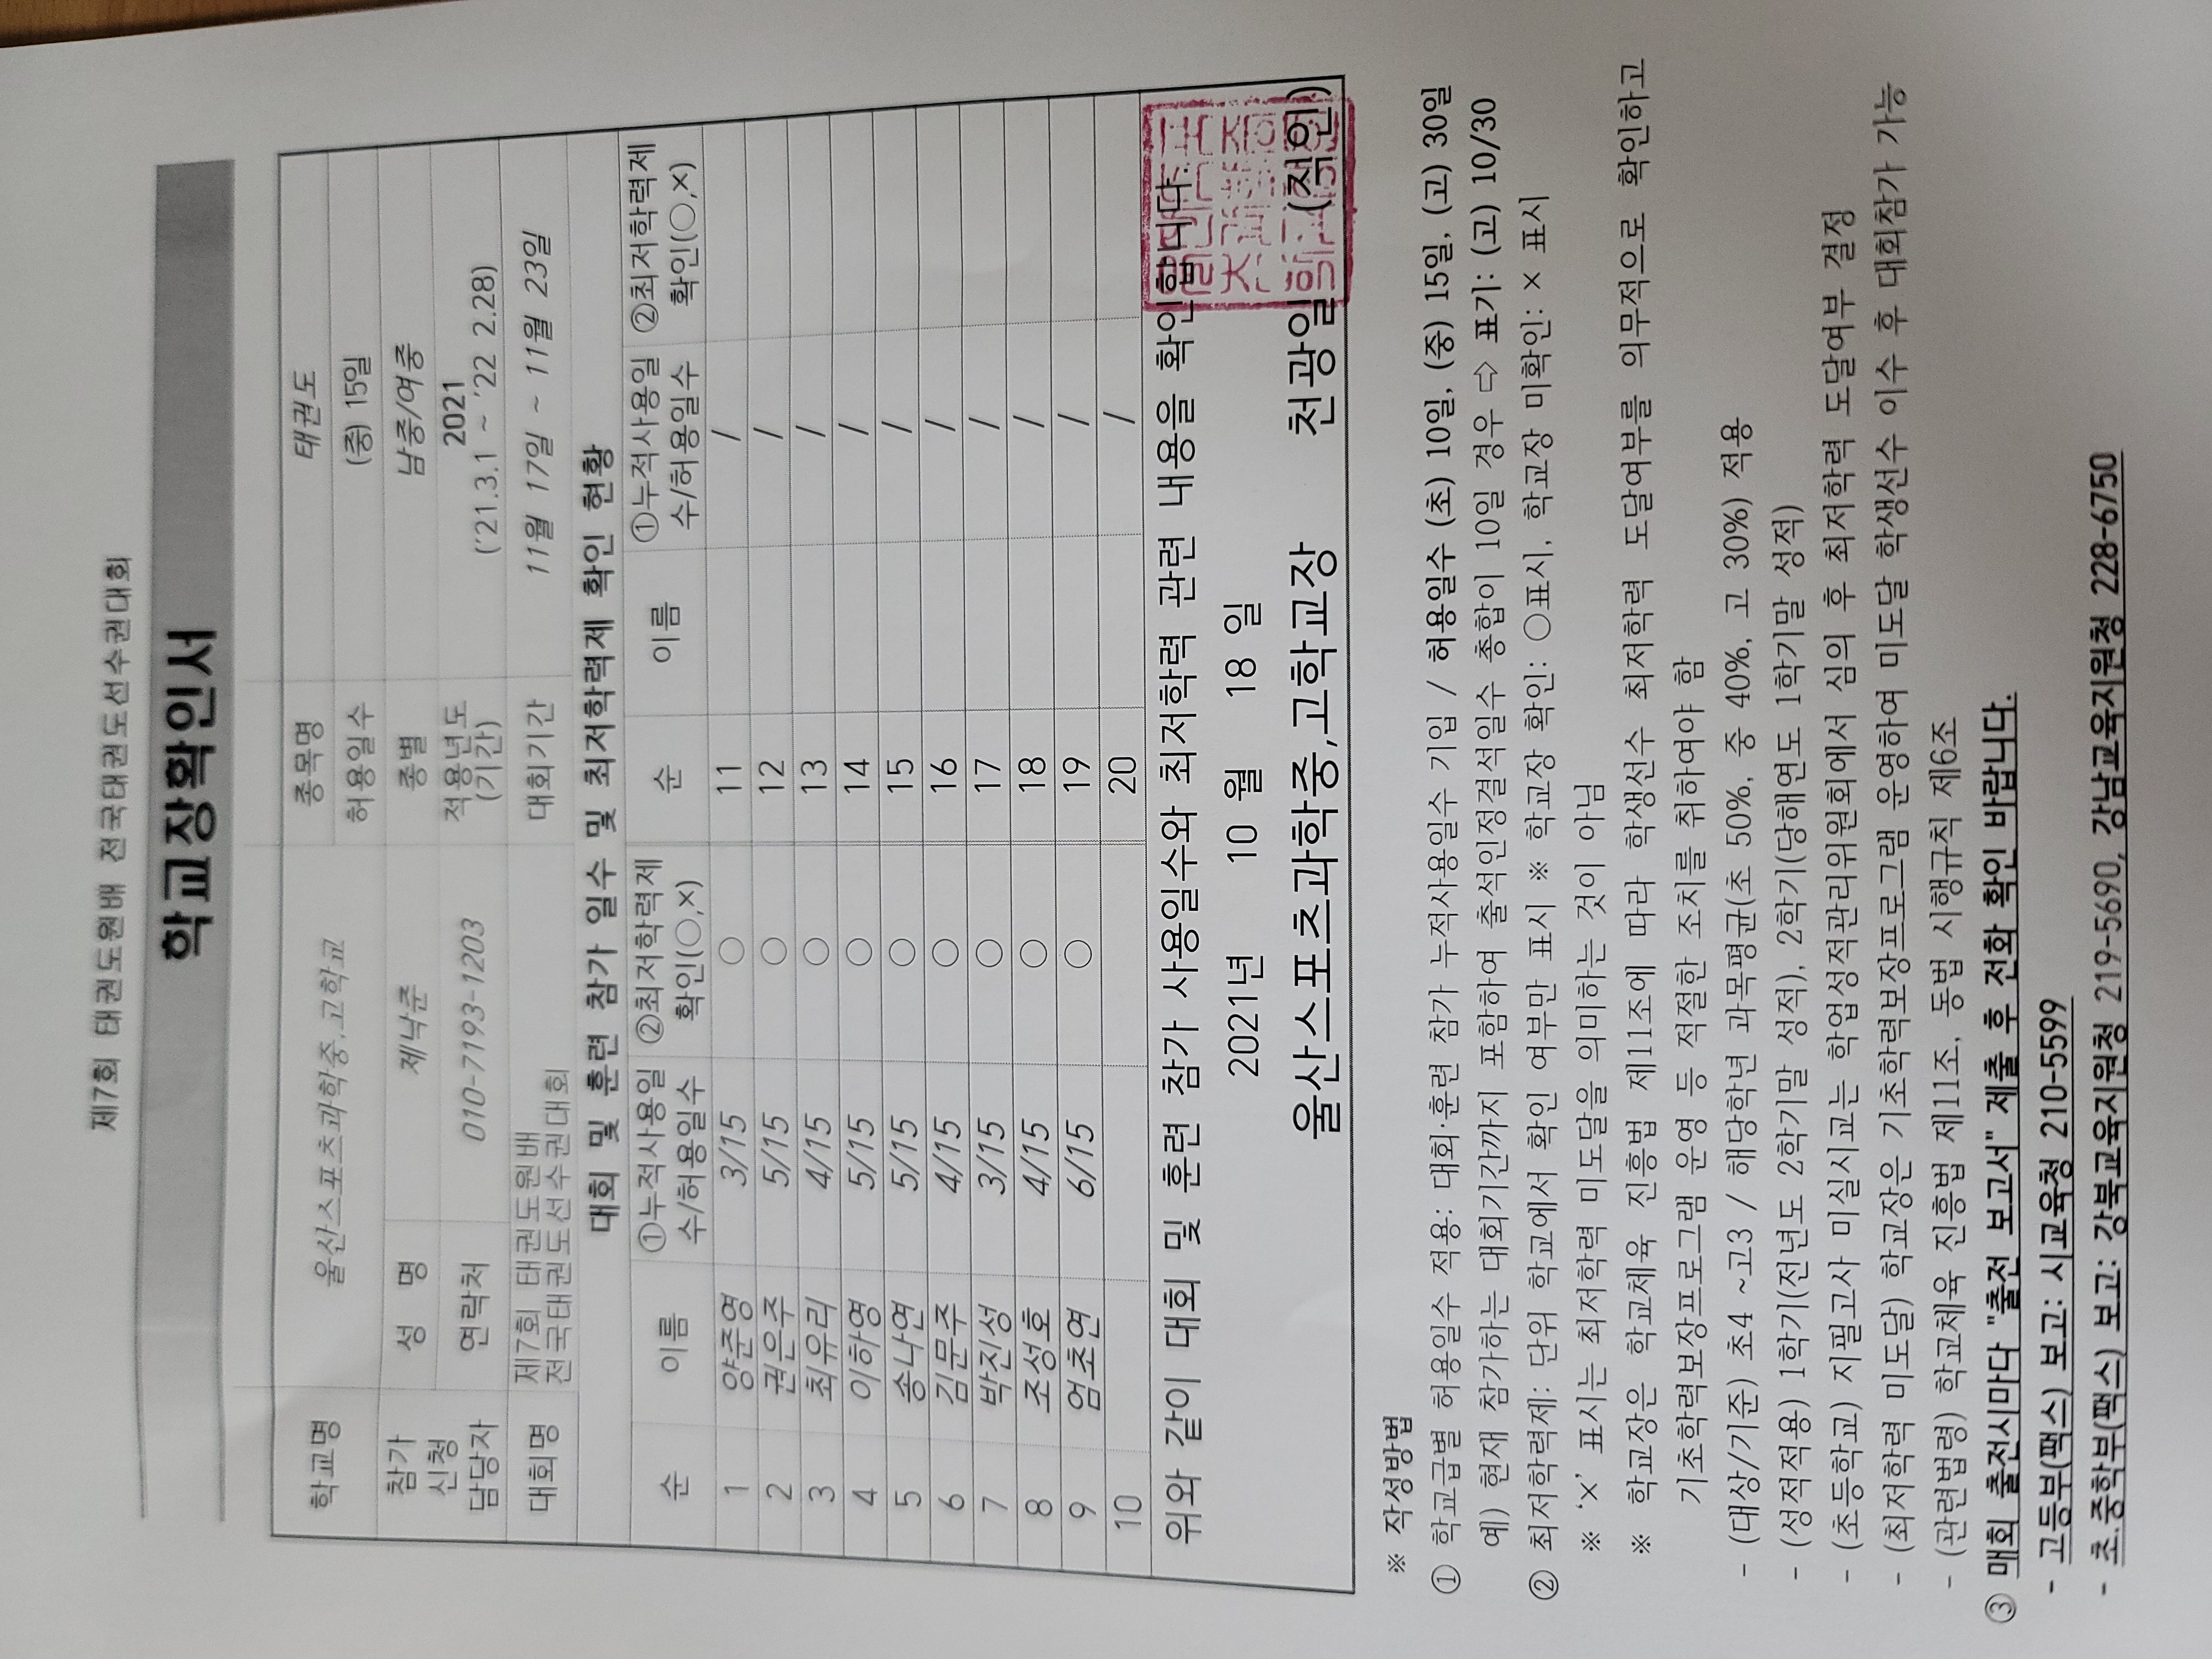 제7회 태권도원배 전국태권도선수권대회
학교장확인서
학교명 울산스포츠과학중,고학교 종목명 태권도
허용일수 (중) 15일
참가 신청 담당자 성 명 제낙준 종별 남중/여중
연락처 010-7193-1203 적용년도 (기간) 2021 ('21.3.1 ~ '22 2.28)
대회명 제7회 태권도원배 전국태권도선수권대회 대회기간 11월 17일 ~ 11월 23일
대회 및 훈련 참가 일수 및 최저학력제 확인 현황
순 이름 ①누적사용일수/허용일수 ②최저학력제 확인(○,×) 순 이름 ①누적사용일수/허용일수 ②최저학력제 확인(○,×)
1 양준영 3/15 ○ 11 /
2 권은주 5/15 ○ 12 /
3 최유리 4/15 ○ 13 /
4 이하영 5/15 ○ 14 /
5 송나연 5/15 ○ 15 /
6 김문주 4/15 ○ 16 /
7 박진성 3/15 ○ 17 /
8 조성호 4/15 ○ 18 /
9 엄초연 6/15 ○ 19 /
10 20 /
위와 같이 대회 및 훈련 참가 사용일수와 최저학력 관련 내용을 확인합니다.
2021년 10 월 18 일
울산스포츠과학중,고학교장 천광일 (직인)
※ 작성방법
① 학교급별 허용일수 적용: 대회·훈련 참가 누적사용일수 기입 / 허용일수 (초) 10일, (중) 15일, (고) 30일
예) 현재 참가하는 대회기간까지 포함하여 출석인정결석일수 총합이 10일 경우 ⇨ 표기: (고) 10/30
② 최저학력제: 단위 학교에서 확인 여부만 표시 ※ 학교장 확인: ○표시, 학교장 미확인: × 표시
※ '×' 표시는 최저학력 미도달을 의미하는 것이 아님
※ 학교장은 학교체육 진흥법 제11조에 따라 학생선수 최저학력 도달여부를 의무적으로 확인하고
기초학력보장프로그램 운영 등 적절한 조치를 취하여야 함
- (대상/기준) 초4 ~고3 / 해당학년 과목평균(초 50%, 중 40%, 고 30%) 적용
- (성적적용) 1학기(전년도 2학기말 성적), 2학기(당해연도 1학기말 성적)
- (초등학교) 지필고사 미실시교는 학업성적관리위원회에서 심의 후 최저학력 도달여부 결정
- (최저학력 미도달) 학교장은 기초학력보장프로그램 운영하여 미도달 학생선수 이수 후 대회참가 가능
- (관련법령) 학교체육 진흥법 제11조, 동법 시행규칙 제6조
③ 매회 출전시마다 "출전 보고서" 제출 후 전화 확인 바랍니다.
- 고등부(팩스) 보고: 시교육청 210-5599
- 초.중학부(팩스) 보고: 강북교육지원청 219-5690, 강남교육지원청 228-6750